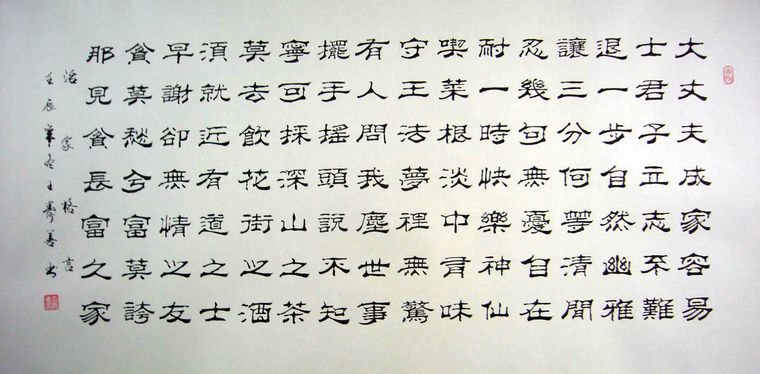 大丈夫成家容易
士君子立志不難
退一步自然幽雅
讓三分何等清閒
忍幾句無憂自在
耐一時快樂神仙
喫菜根淡中有味
守王法夢裡無驚
有人問我塵世事
擺手搖頭說不知
寧可採深山之茶
莫去飲花街之酒
須就近有道之士
早謝卻無情之友
貧莫愁兮富莫誇
那見貧長富久家
治家格言
壬辰年冬王壽善書